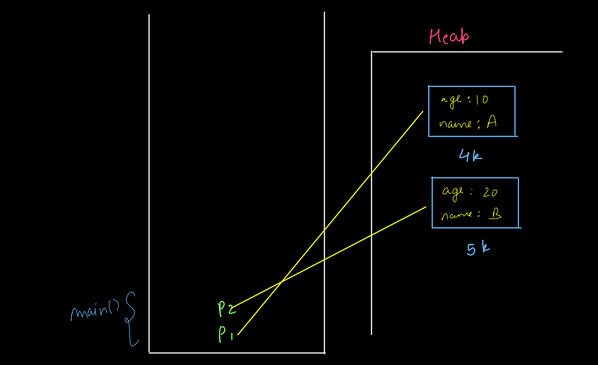 Heap
age : 10
name : A
4k
age : 20
name : B
5k
main() {
P2
P1